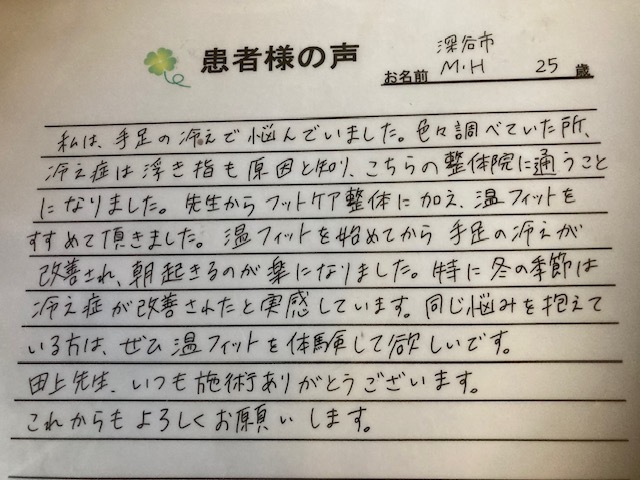 患者様の声
深谷市
お名前 M・H 25 歳
私は、手足の冷えで悩んでいました。色々調べていた所、
冷え症は浮き指も原因と知り、こちらの整体院に通うこと
になりました。先生からフットケア整体に加え、温フィットを
すすめて頂きました。温フィットを始めてから手足の冷えが
改善され、朝起きるのが楽になりました。特に冬の季節は
冷え症が改善されたと実感しています。同じ悩みを抱えて
いる方は、ぜひ温フィットを体験して欲しいです。
田上先生、いつも施術ありがとうございます。
これからもよろしくお願いします。